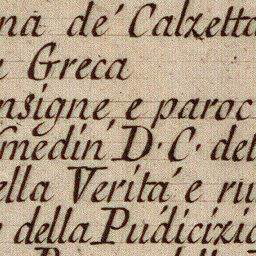 na de' Calzetta
Greca
nsigne, e paroc
medin, D. C. del
ella Verità e ru
della Pudicizia